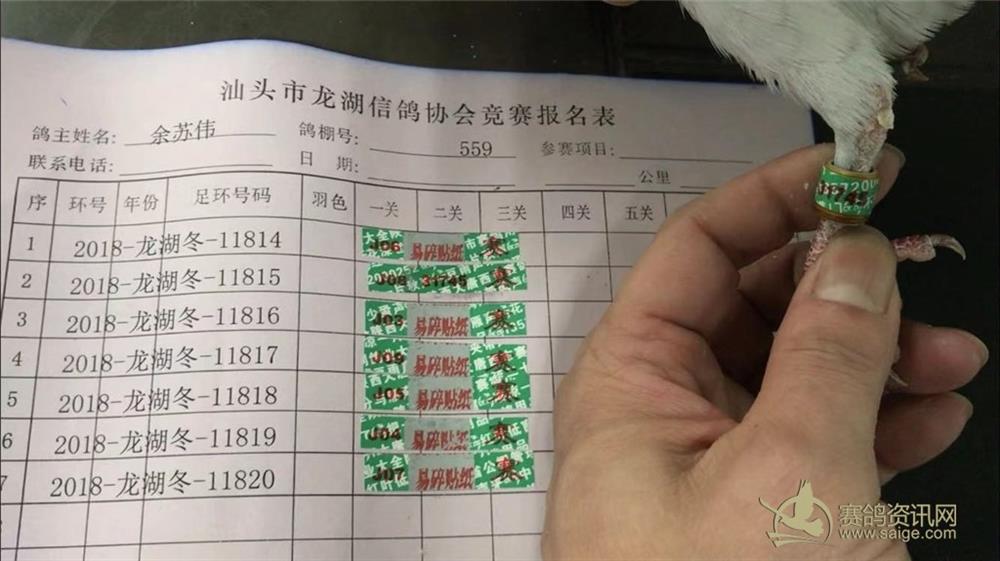 汕头市龙湖信鸽协会竞赛报名表
鸽主姓名: 余苏伟 鸽棚号: 559 参赛项目:
联系电话: 日 期: 公里
序 环号 年份 足环号码 羽色 一关 二关 三关 四关 五关
1 2018-龙湖冬-11814 J06 易碎贴纸 赛
2 2018-龙湖冬-11815 J08 31745 赛
3 2018-龙湖冬-11816 J03 易碎贴纸 赛
4 2018-龙湖冬-11817 J09 易碎贴纸 赛
5 2018-龙湖冬-11818 J05 易碎贴纸 赛
6 2018-龙湖冬-11819 J04 易碎贴纸 赛
7 2018-龙湖冬-11820 J07 易碎贴纸 赛
赛鸽资讯网
www.saige.com